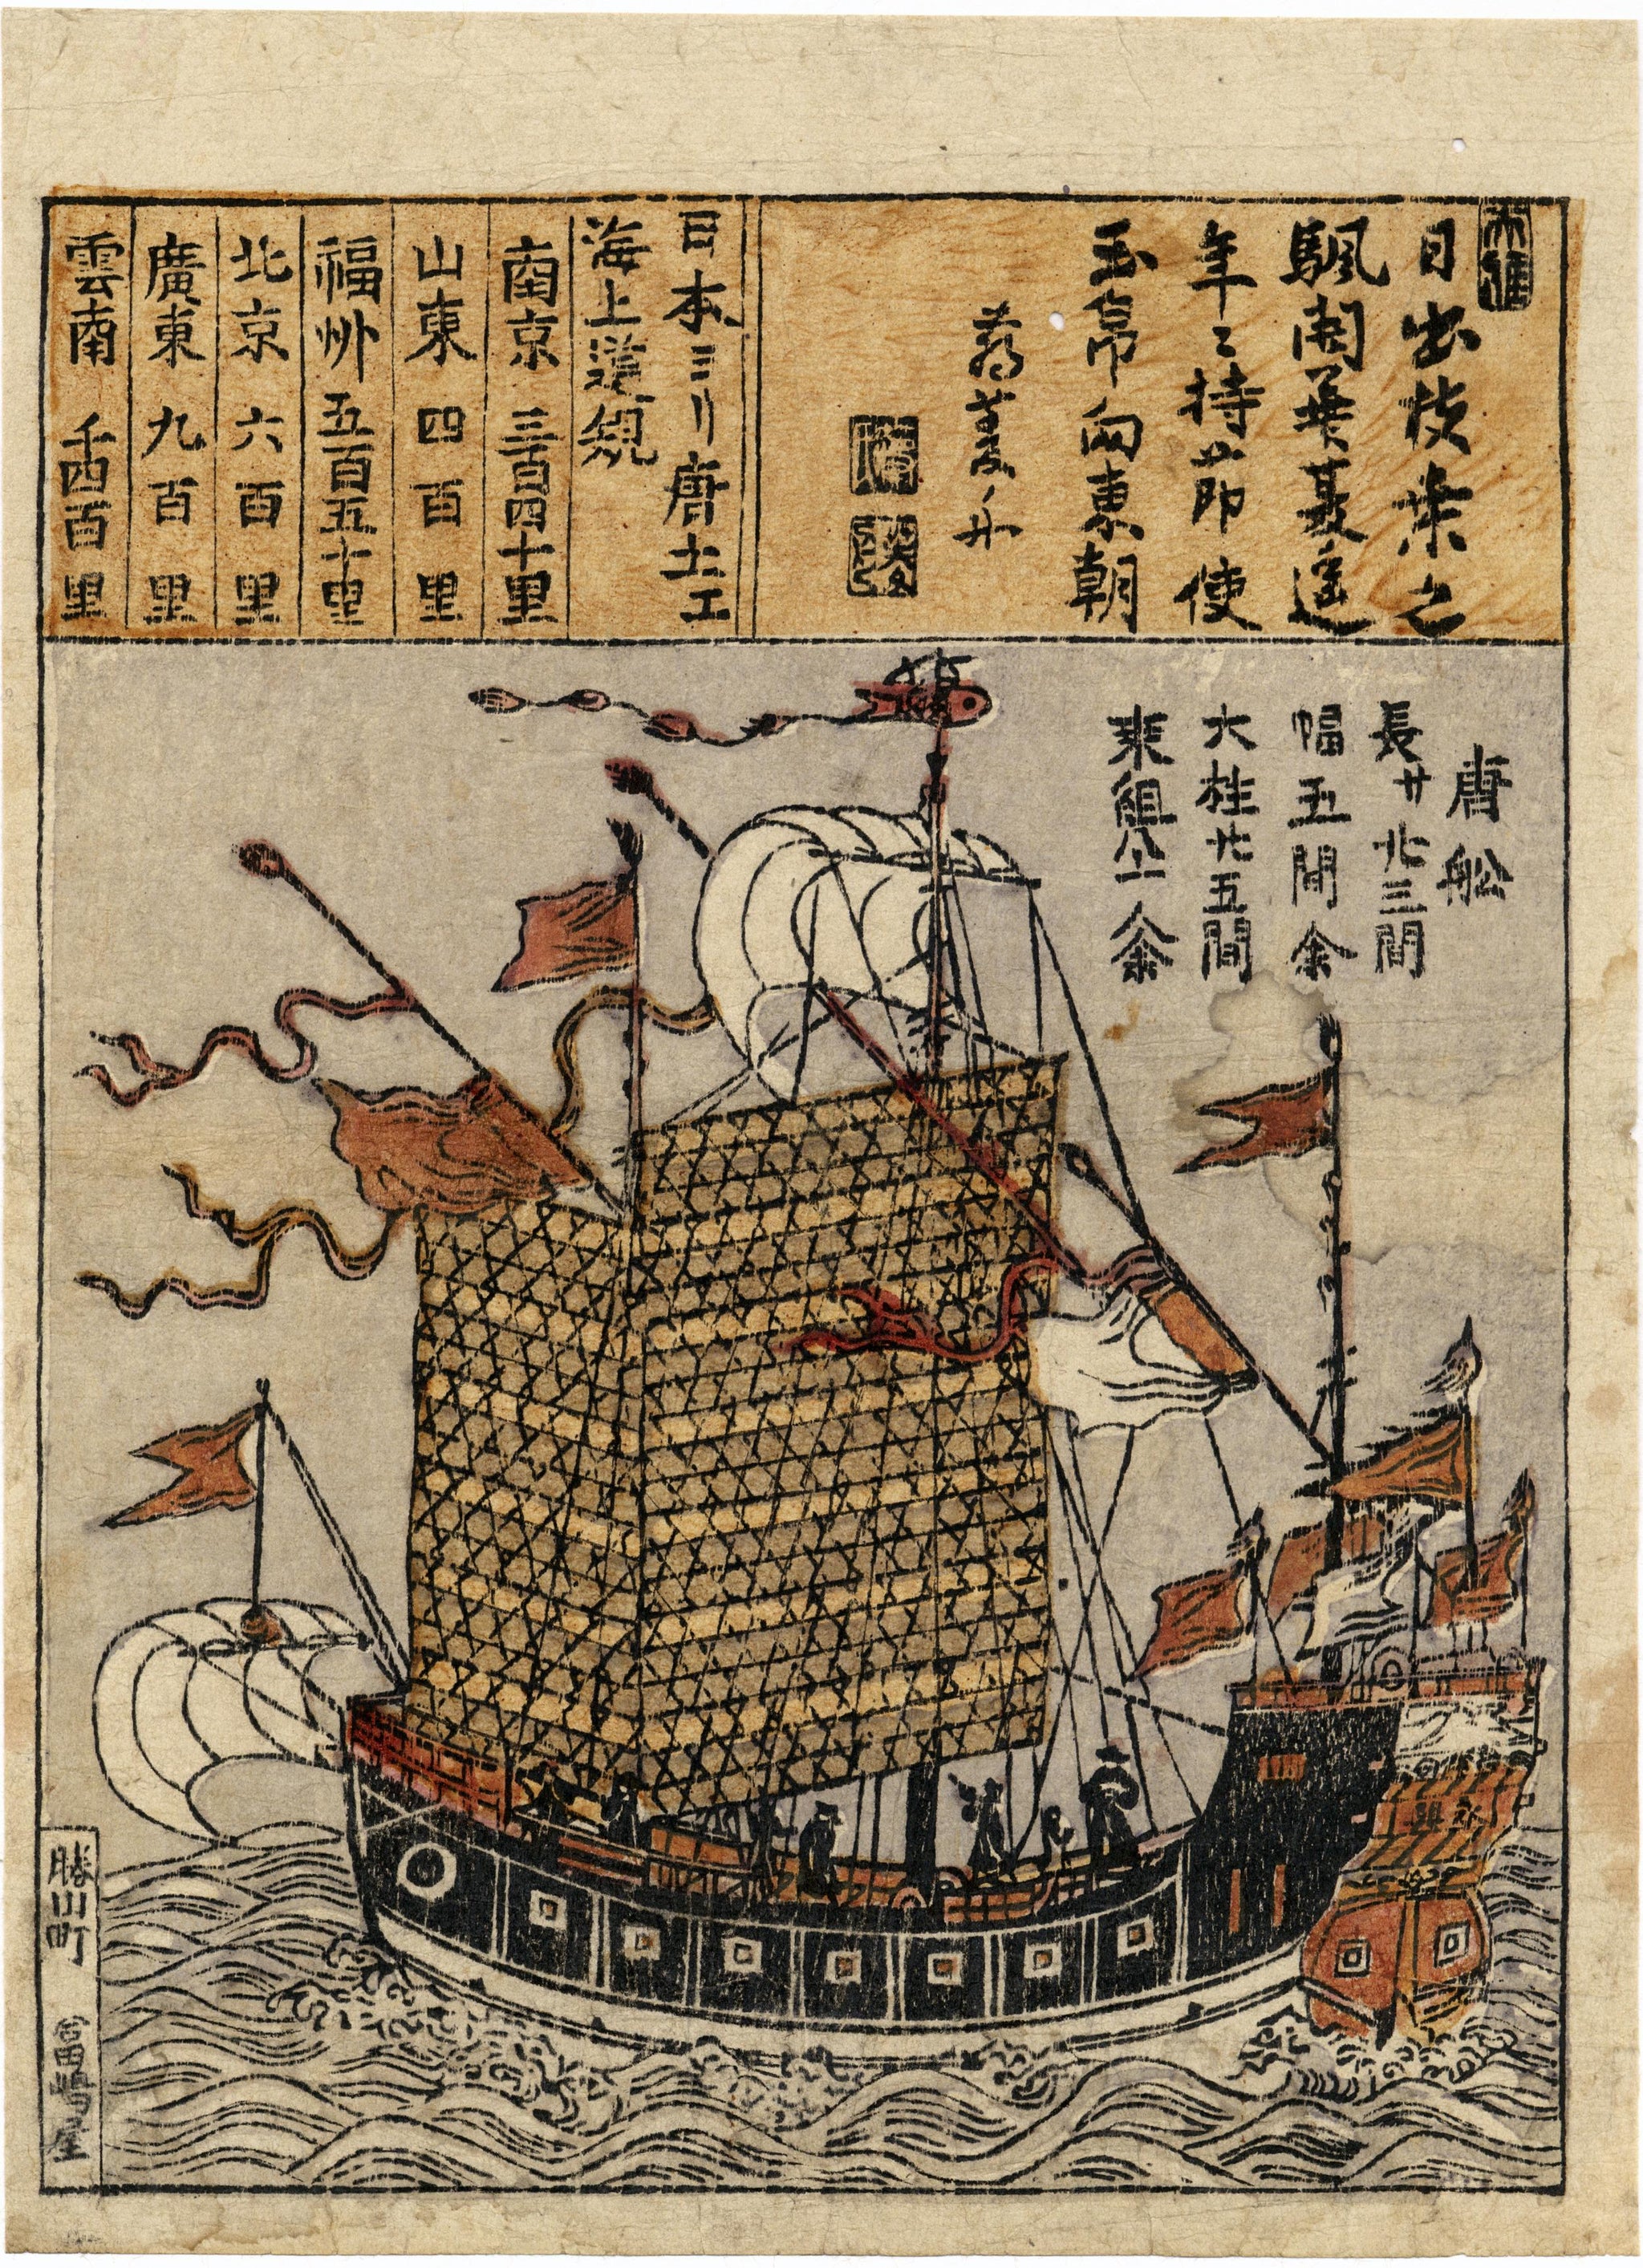 日出扶桑之
颿開華蓋遥
年〻持節使
玉帛向東朝
日本ヨリ唐土エ
海上道規
南京 三百四十里
山東 四百里
福州 五百五十里
北京 六百里
廣東 九百里
雲南 千四百里
唐船
長サ廾三間
幅五間余
大柱廾五間
乗組八十人余
勝山町 富嶋屋